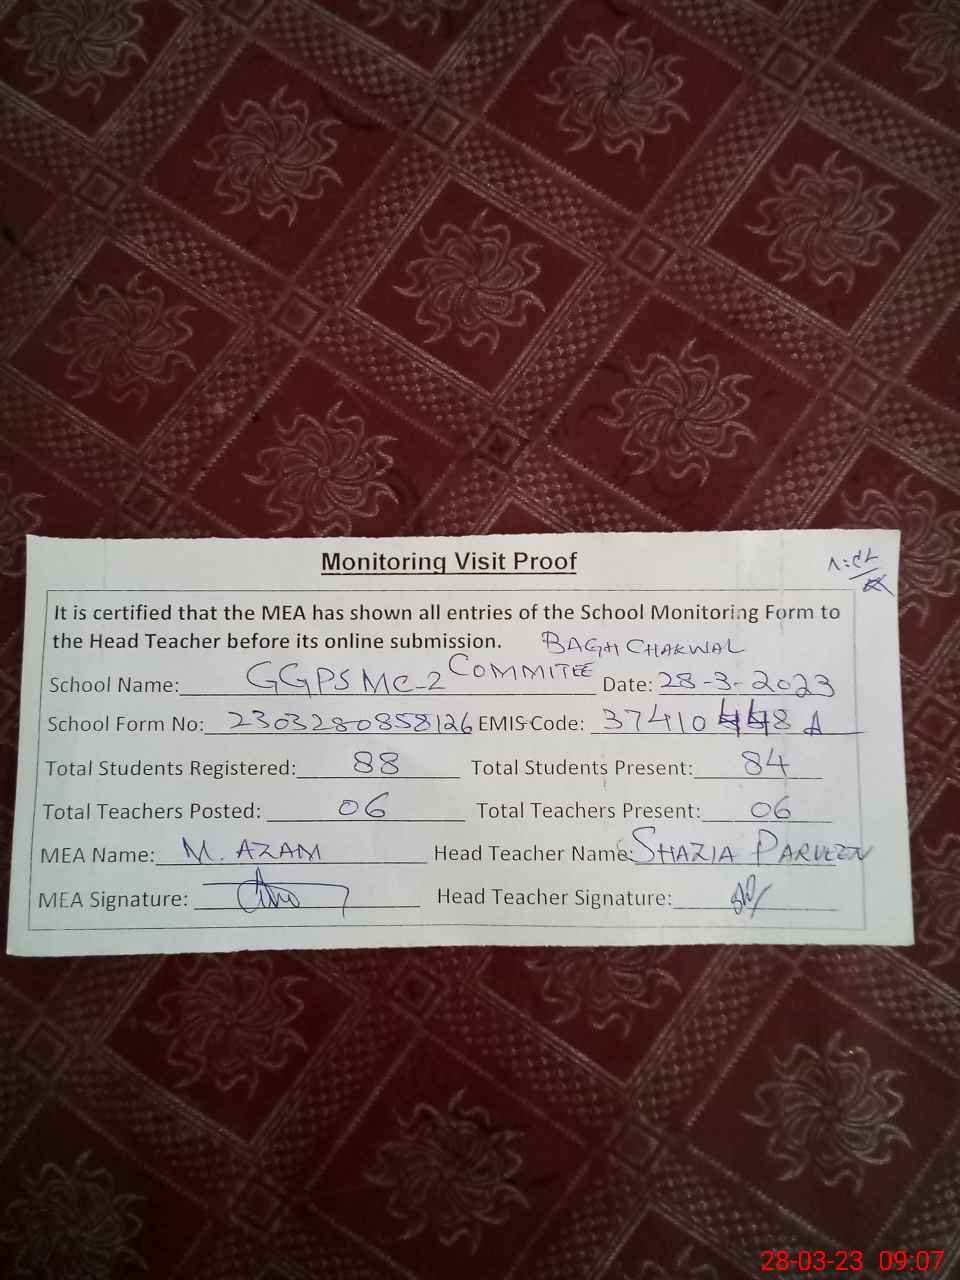 Monitoring Visit Proof
It is certified that the MEA has shown all entries of the School Monitoring Form to
the Head Teacher before its online submission. BAGH CHAKWAL
School Name: GGPS MC-2 COMMITEE Date: 28-3-2023
School Form No: 2303280858126 EMIS Code: 37410
Total Students Registered: 88 Total Students Present: 84
Total Teachers Posted: 06 Total Teachers Present: 06
MEA Name: M. AZAM Head Teacher Name: SHAZIA PARVEEN
MEA Signature: Head Teacher Signature:
28-03-23 09:07